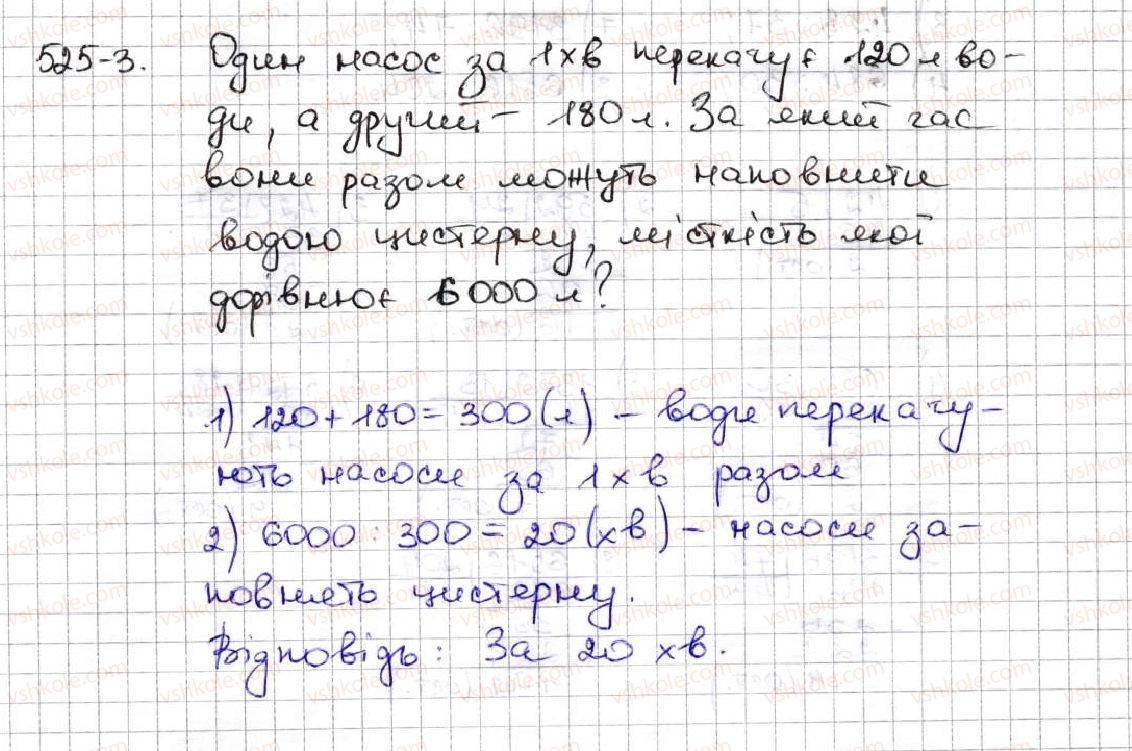 525-3. Один насос за 1 хв перекачує 120 л во-
ди, а другий - 180 л. За який час
вони разом можуть наповнити
водою цистерну, місткість якої
дорівнює 6000 л?
1) 120 + 180 = 300 (л) - води перекачу-
ють насоси за 1 хв разом
2) 6000 : 300 = 20 (хв) - насоси за-
повнять цистерну.
Відповідь: За 20 хв.